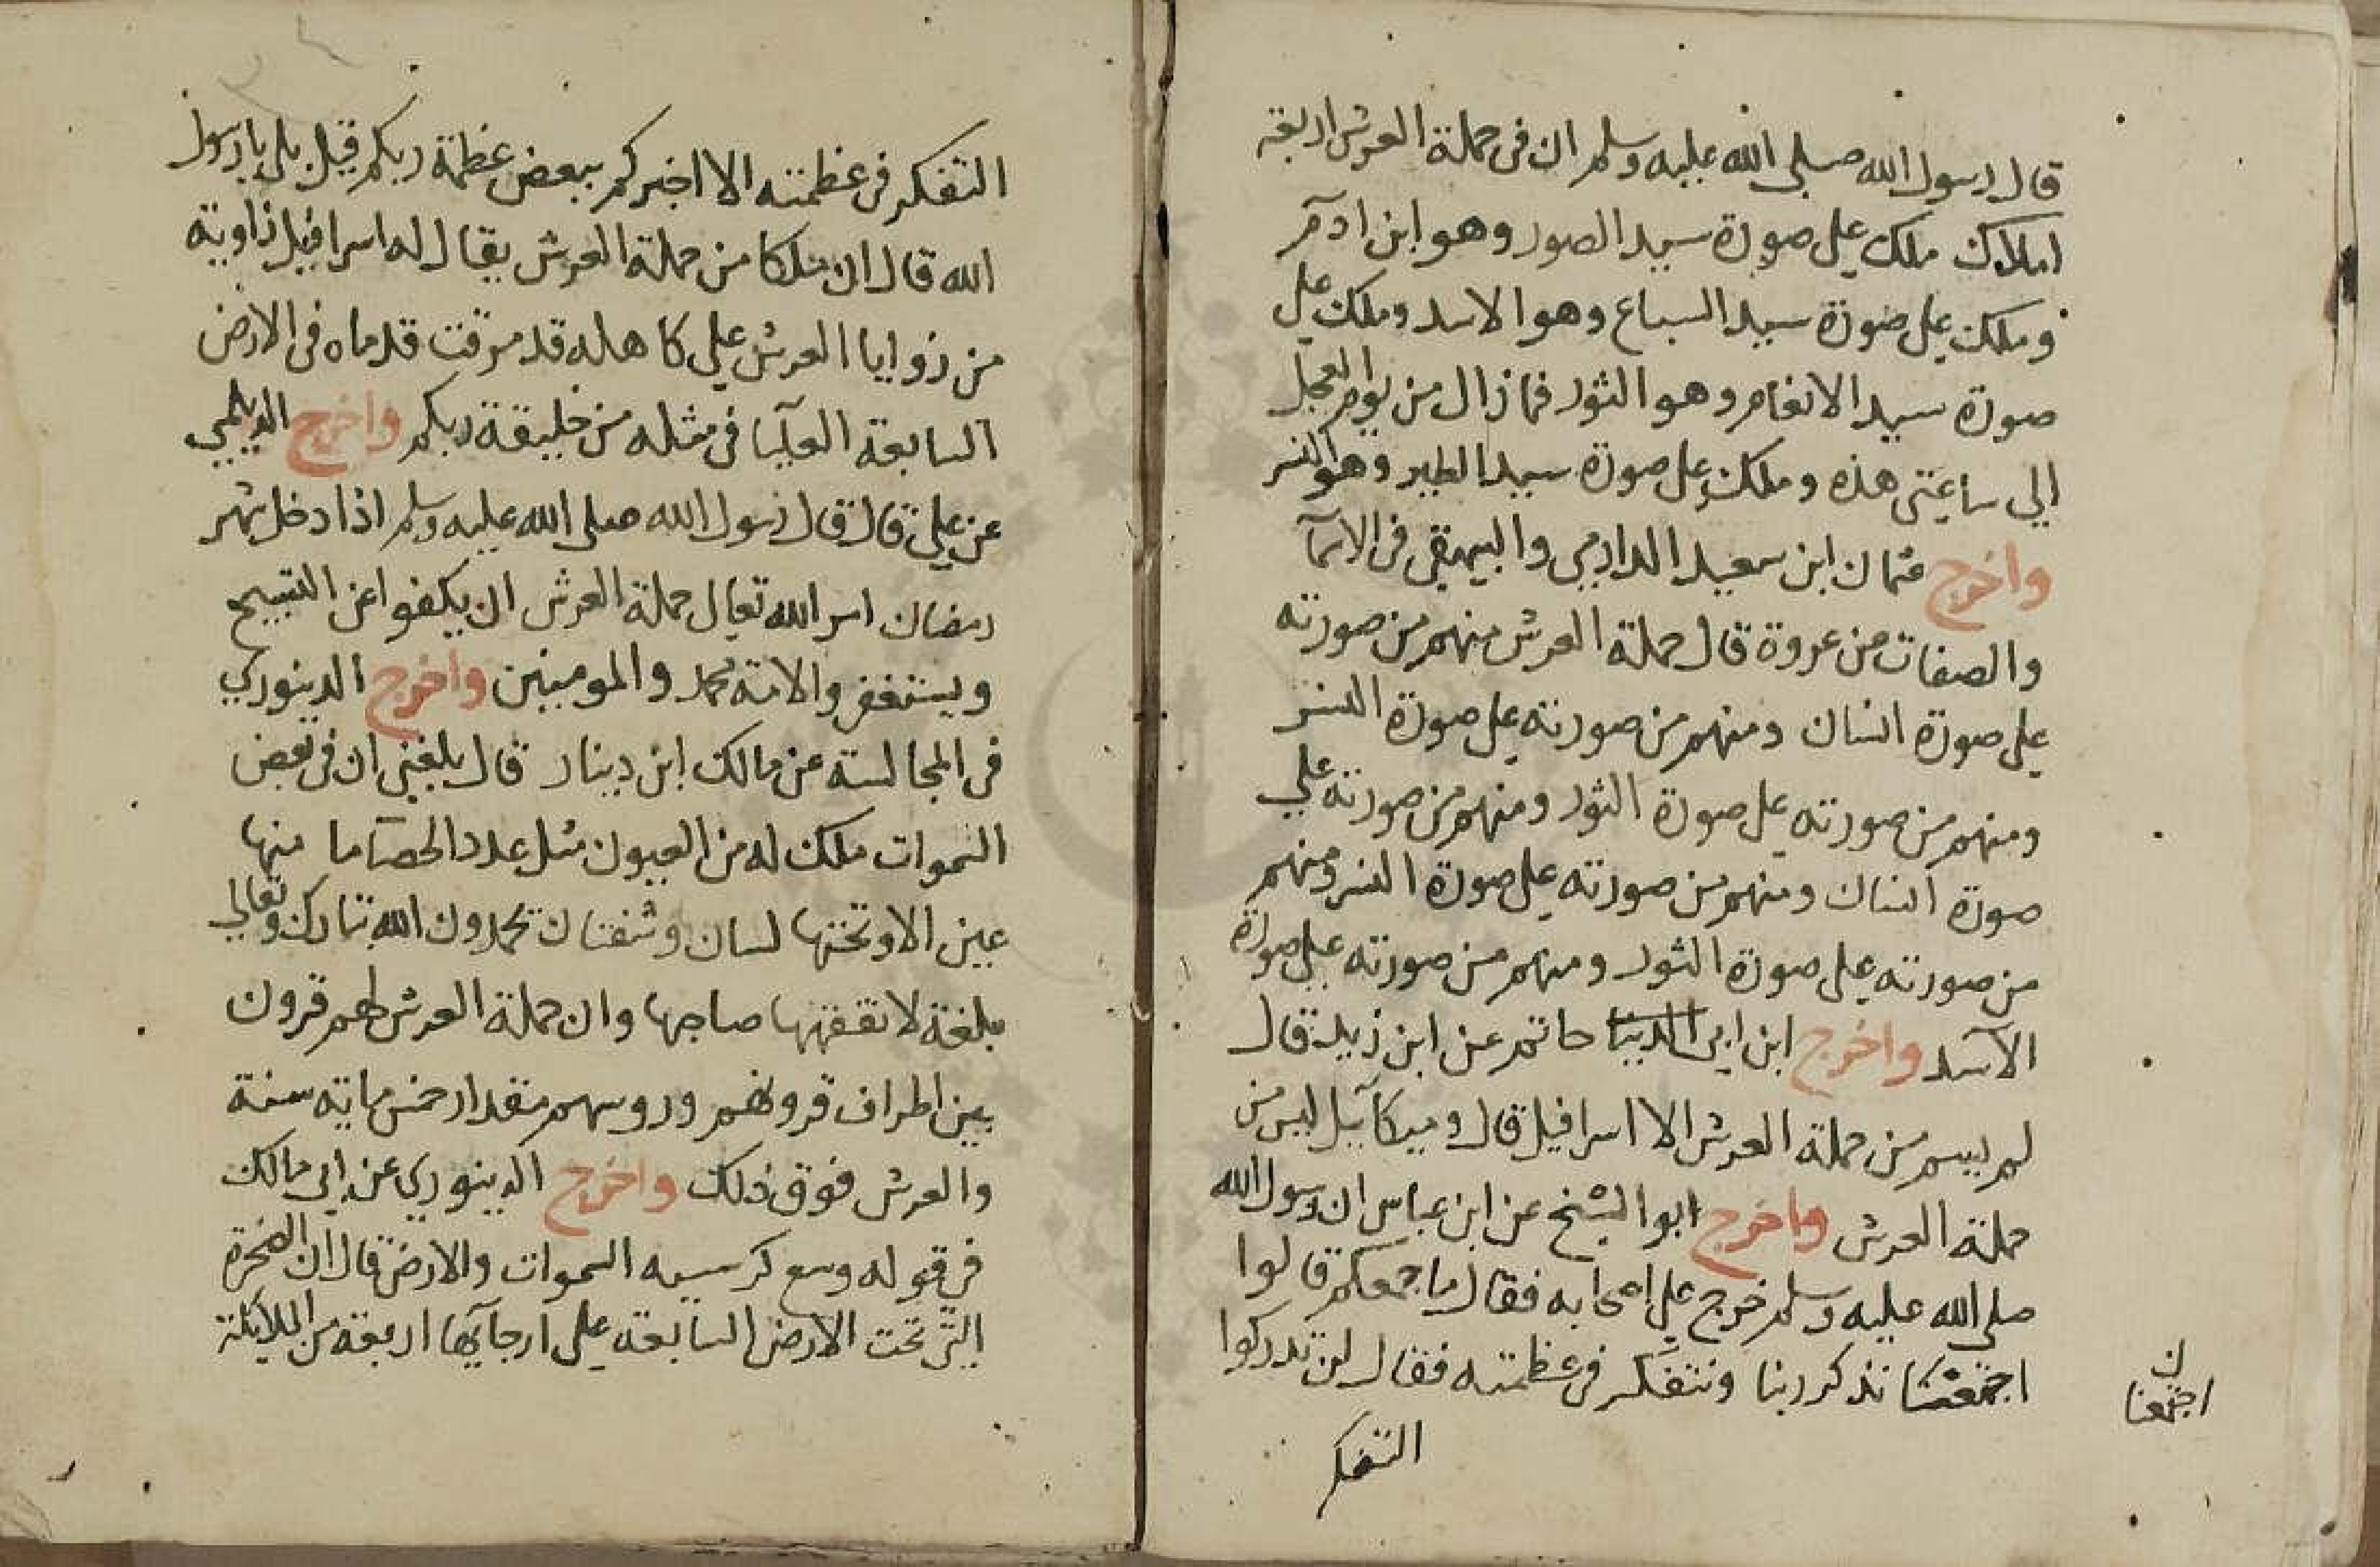 قال رسول الله صلى الله عليه وسلم ان فى حملة العرش اربعة
املاك ملك على صورة سيد الصور وهو ابن ادم
وملك على صورة سيد السباع وهو الاسد وملك على
صورة سيد الانعام وهو الثور فما زال من يوم العجل
الي ساعتى هذه وملك على صورة سيد الطير وهو النسر
واخرج عثمان ابن سعيد الدارمي والبيهقى فى الاسمآ
والصفات عن عروة قال حملة العرش منهم من صورته
على صورة انسان ومنهم من صورته على صورة النسر
ومنهم من صورته على صورة الثور ومنهم من صورته علي
صورة انسان ومنهم من صورته على صورة النسر ومنهم
من صورته على صورة الثور ومنهم من صورته على صورة
الاسد واخرج ابن ابى الدنيا حاتم عن ابن زيد قال
لم يسم من حملة العرش الا اسرافيل قال وميكآئيل ليس من
حملة العرش واخرج ابوا الشيخ عن ابن عباس ان رسول الله
صلى الله عليه وسلم خرج على اصحابه فقال ما جمعكم قالوا
اجتمعنا نذكر ربنا ونتفكر فى عظمته فقال لن تدركوا
ن
اجتمعنا
التفكر
التفكر فى عظمته الا اخبركم ببعض عظمة ربكم قيل بلى يا رسول
الله قال ان ملكا من حملة العرش يقال له اسرافيل زاوية
من زوايا العرش على كاهله قد مرقت قدماه فى الارض
السابعة العليا فى مثله من خليقة ربكم واخرج الديلمي
عن على قال قال رسول الله صلى الله عليه وسلم اذا دخل شهر
رمضان امر الله تعالى حملة العرش ان يكفوا عن التسبيح
ويستغفروا لامة محمد والمومنين واخرج الدينوري
فى المجالسة عن مالك ابن دينار قال بلغنى ان فى بعض
السموات ملك له من العيون مثل عدد الحصا ما منها
عين الا وتحتها لسان وشفتان تحمدون الله تبارك وتعالى
بلغة لا تفقهها صاحبها وان حملة العرش لهم قرون
بين اطراف قرونهم وروسهم مقدار خمس ماية سنة
والعرش فوق ذلك واخرج الدينوري عن ابى مالك
فى قوله وسع كرسيه السموات والارض قال ان الصخرة
التى تحت الارض السابعة على ارجآيها اربعة من الملايكة